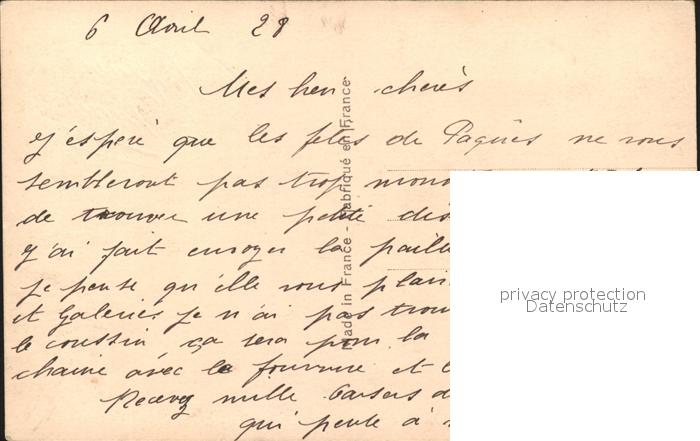 6 Avril 28
Mes bien cherès
J'éspere que les fetes de Paques ne vous
sembleront pas trop
de trouver une petite
J'ai fait envoyer la
je pense qu'elle vous
et Galeries je n'ai pas
le coussin ça sera pour la
chaine avec la fourrure et
Recevez mille baisers
qui pense à
Made in France - Fabriqué en France
privacy protection
Datenschutz